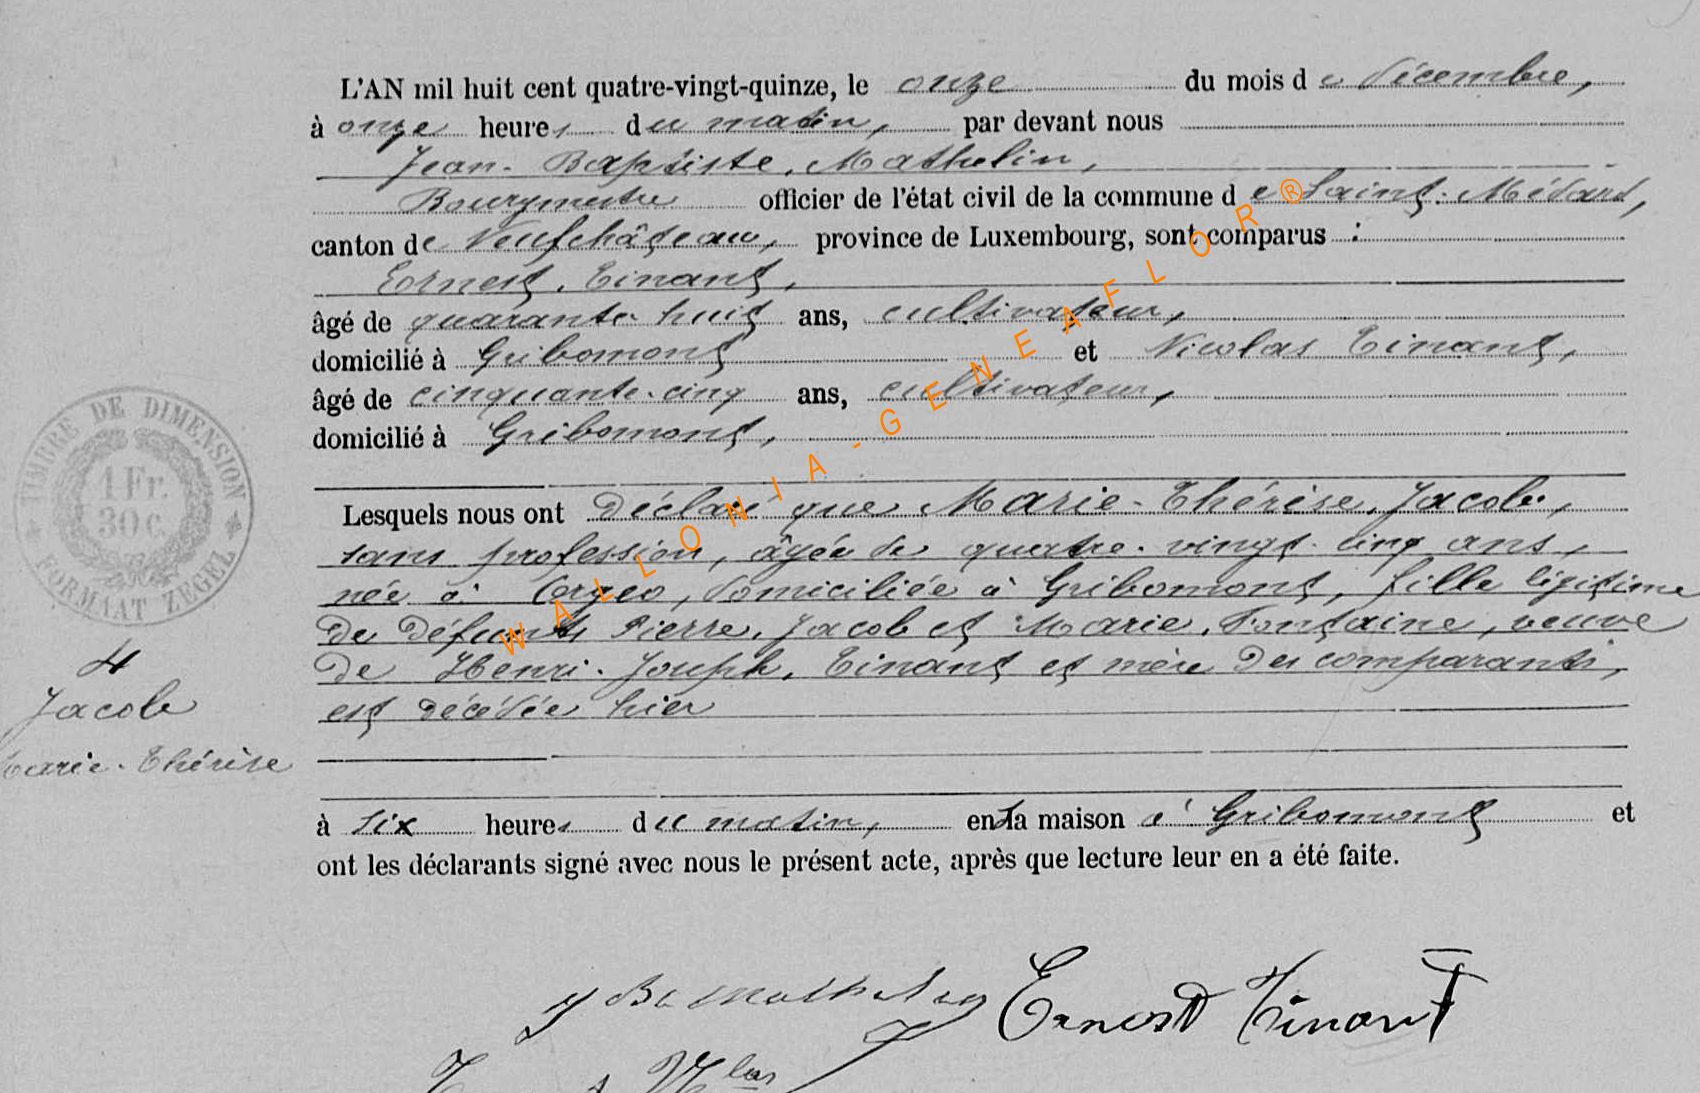 L'AN mil huit cent quatre-vingt-quinze, le onze du mois de décembre,
à onze heures du matin, par devant nous
Jean-Baptiste Mathelin,
Bourgmestre officier de l'état civil de la commune de Saint-Médard,
canton de Neufchâteau, province de Luxembourg, sont comparus :
Ernest Tinant,
âgé de quarante-huit ans, cultivateur,
domicilié à Gribomont et Nicolas Tinant,
âgé de cinquante-cinq ans, cultivateur,
domicilié à Gribomont,
Lesquels nous ont déclaré que Marie-Thérèse Jacob,
sans profession, âgée de quatre-vingt-cinq ans,
née à domiciliée à Gribomont, fille légitime
de défunts Pierre Jacob et Marie Fontaine, veuve
de Henri-Joseph Tinant et mère des comparants,
est décédée hier
à six heures du matin, en sa maison à Gribomont et
ont les déclarants signé avec nous le présent acte, après que lecture leur en a été faite.
TIMBRE DE DIMENSION
1 Fr.
30 c.
FORMAAT ZEGEL
4
Jacob
Marie-Thérèse
J B Mathelin Ernest Tinant
WALLONIA-GENEAFLOR®